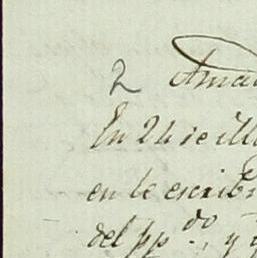 2 Ama
En 24 de
en le escrib
del pp.do, y